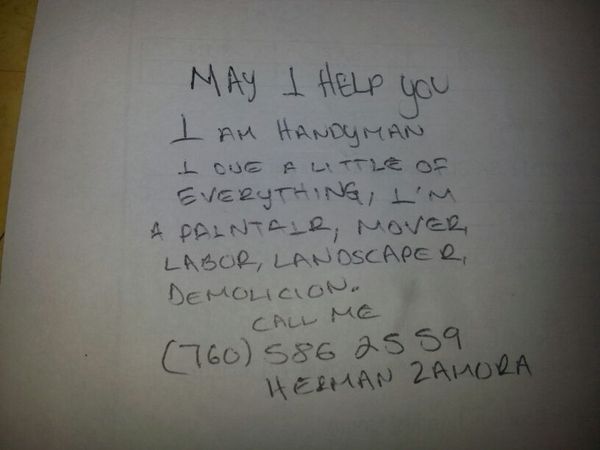 MAY I HELP YOU
I AM HANDYMAN
I DUE A LITTLE OF
EVERYTHING, I'M
A PAINTAIR, MOVER,
LABOR, LANDSCAPER,
DEMOLICION.
CALL ME
(760) 586 2559
HERMAN ZAMORA